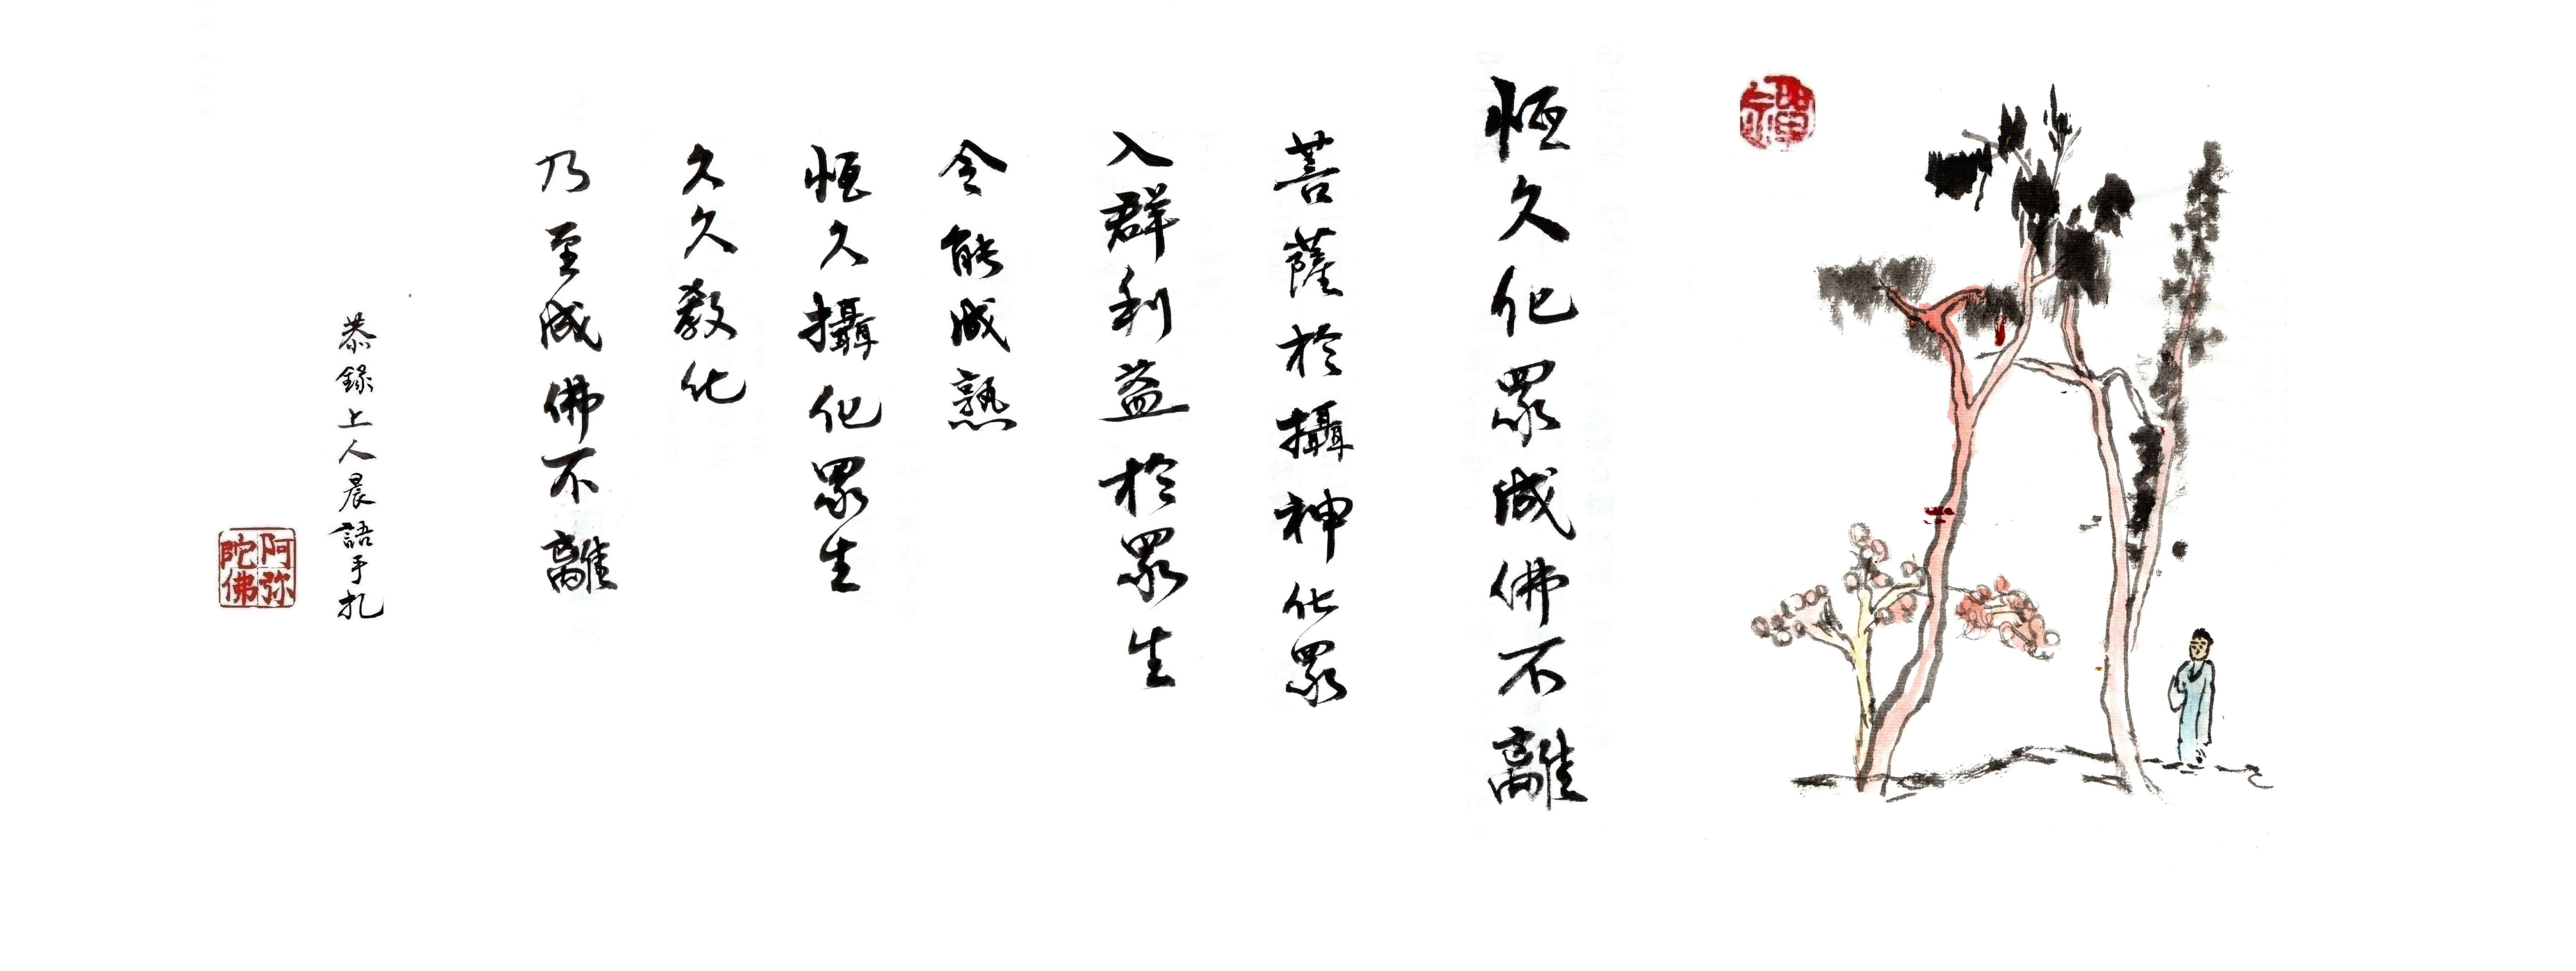 禪
恆久化眾成佛不離
菩薩於攝神化眾
入群利益於眾生
令能成熟
恆久攝化眾生
久久教化
乃至成佛不離
恭錄上人晨語手札
阿弥
陀佛